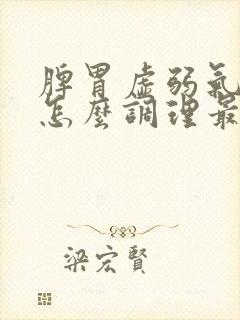 脾胃虛弱氣
怎麼調理最
梁宏賢